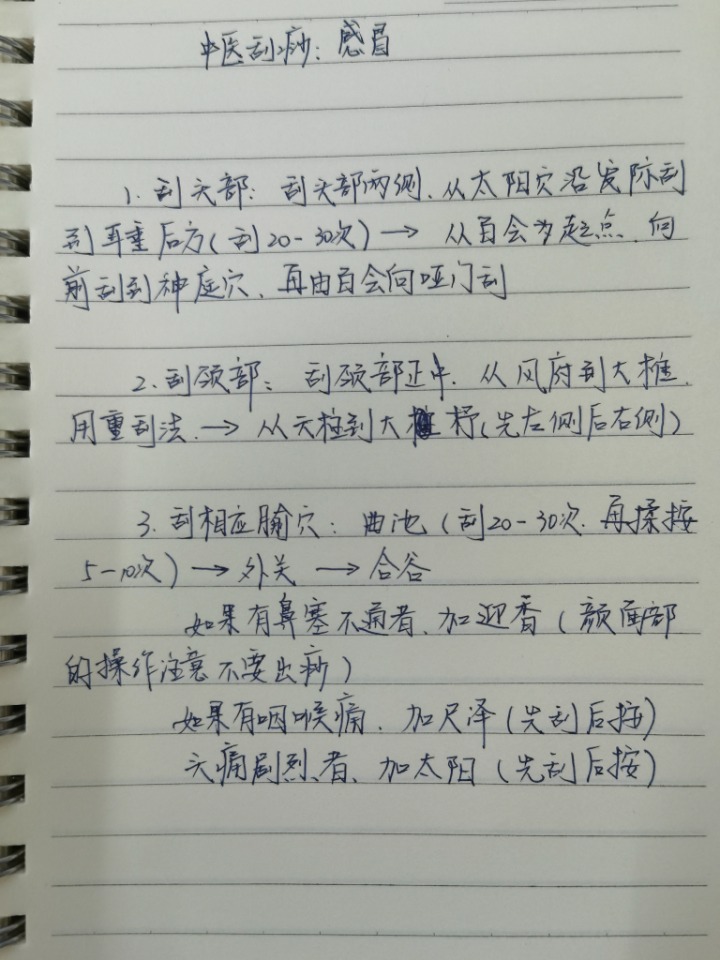 中医刮痧：感冒
1.刮头部：刮头部两侧，从太阳穴沿发际刮
到耳垂后方(刮20-30次)→ 从百会为起点，向
前刮到神庭穴，再由百会向哑门刮
2.刮颈部：刮颈部正中，从风府到大椎，
用重刮法，→ 从天柱到大杼(先左侧后右侧)
3.刮相应腧穴：曲池(刮20-30次，再揉按
5-10次)→外关 →合谷
如果有鼻塞不通者，加迎香(颜面部
的操作注意不要出痧)
如果有咽喉痛，加尺泽(先刮后按)
头痛剧烈者，加太阳(先刮后按)